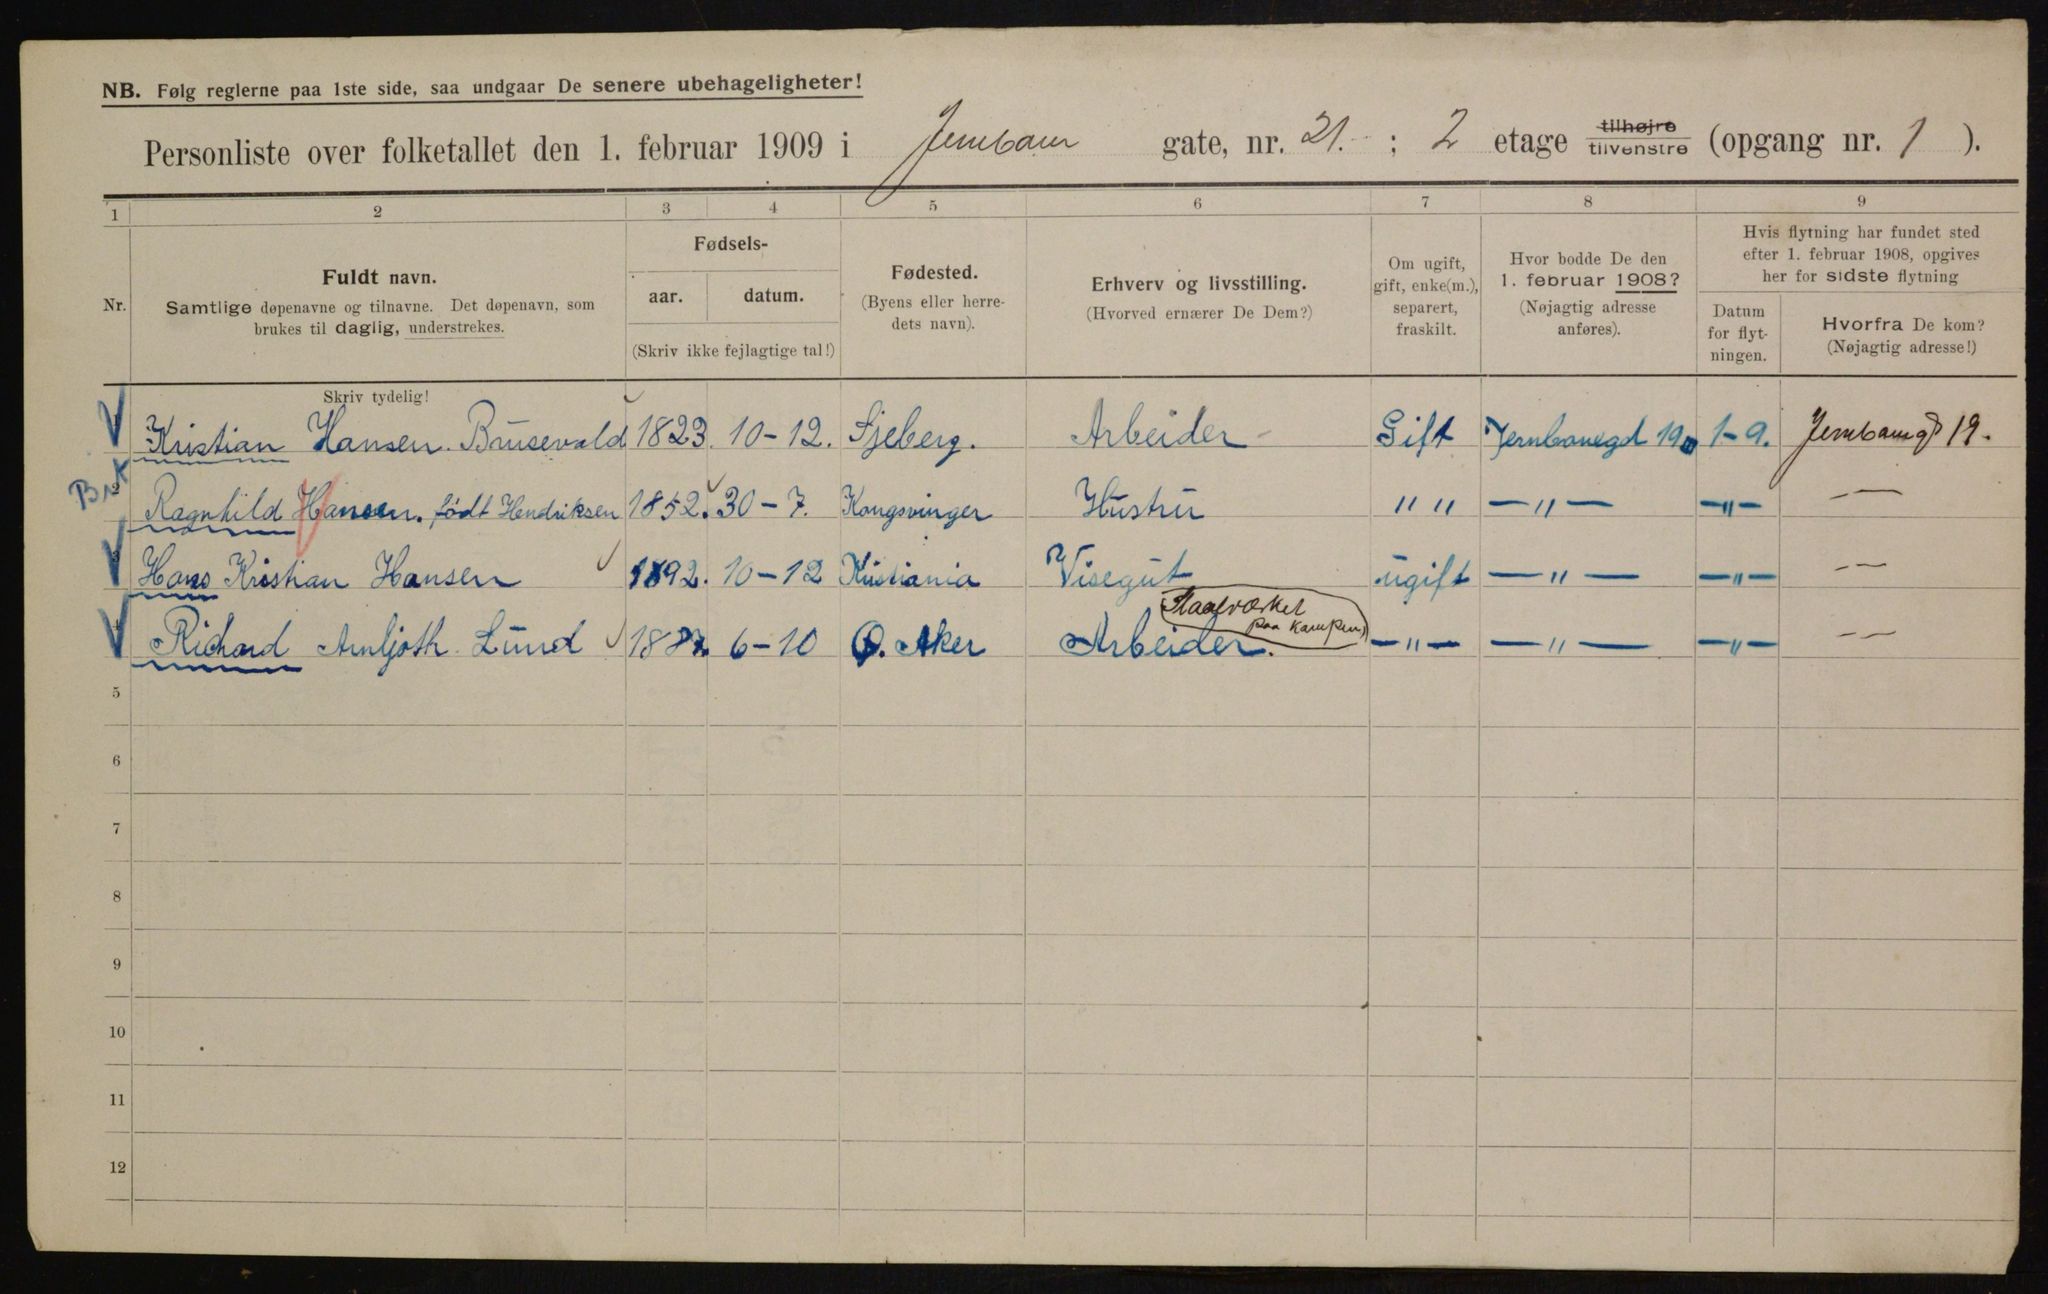 NB. Følg reglerne paa 1ste side, saa undgaar De senere ubehageligheter!
Personliste over folketallet den 1. februar 1909 i Jernbane gate, nr. 21. ; 2 etage tilhøjre tilvenstre (opgang nr. 1 ).
1 2 3 4 5 6 7 8 9
Nr.
Fuldt navn.
Samtlige døpenavne og tilnavne. Det døpenavn, som
brukes til daglig, understrekes.
Skriv tydelig!
Fødsels-
aar. datum.
(Skriv ikke fejlagtige tal!)
Fødested.
(Byens eller herre-
dets navn).
Erhverv og livsstilling.
(Hvorved ernærer De Dem?)
Om ugift,
gift, enke(m.),
separert,
fraskilt.
Hvor bodde De den
1. februar 1908?
(Nøjagtig adresse
anføres).
Hvis flytning har fundet sted
efter 1. februar 1908, opgives
her for sidste flytning
Datum
for flyt-
ningen.
Hvorfra De kom?
(Nøjagtig adresse!)
Kristian Hansen. Brusevold 1823. 10-12. Sjeberg. Arbeider Gift Jernbanegd 19 1-9. Jernbanegd 19.
2 Ragnhild Hansen. født Hendriksen 1852. 30-7. Kongsvinger Hustru " " — " — — " — — —
3 Hans Kristian Hansen 1892. 10-12 Kristiania Visegut ugift — " — — " — — —
Staalværket
paa Kampen
4 Richard Arnljoth Lund 188 6-10 Ø. Aker Arbeider. — " — — " — — " — — —
5
6
7
8
9
10
11
12